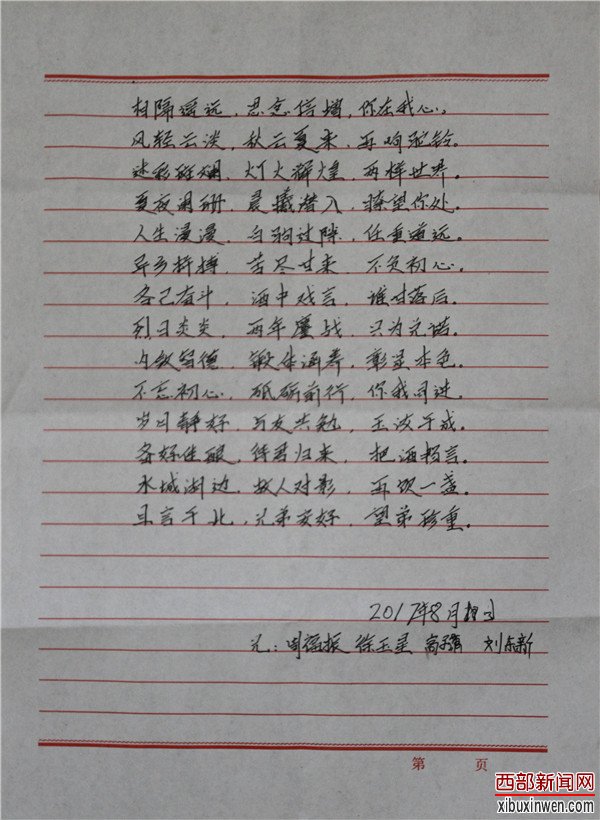 相隔遥远，思念倍增，你在我心。
风轻云淡，秋去夏来，再响驼铃。
迷彩斑斓，灯火辉煌，两样世界。
夏夜阑珊，晨曦潜入，瞭望你处。
人生漫漫，白驹过隙，任重道远。
异乡拼搏，苦尽甘来，不负初心。
各己奋斗，酒中戏言，谁甘落后。
烈日炎炎，两年鏖战，只为允诺。
内敛留德，锻体涵养，彰显本色。
不忘初心，砥砺前行，你我同进。
岁月静好，与友共勉，玉汝于成。
备好佳酿，待君归来，把酒畅言。
水城湖边，故人对影，再饮一盏。
书言于此，兄弟友好，望弟珍重。
2017年8月
兄：周 振 徐玉星 高 刘 新
第 页
西部新闻网
xibuxinwen.com